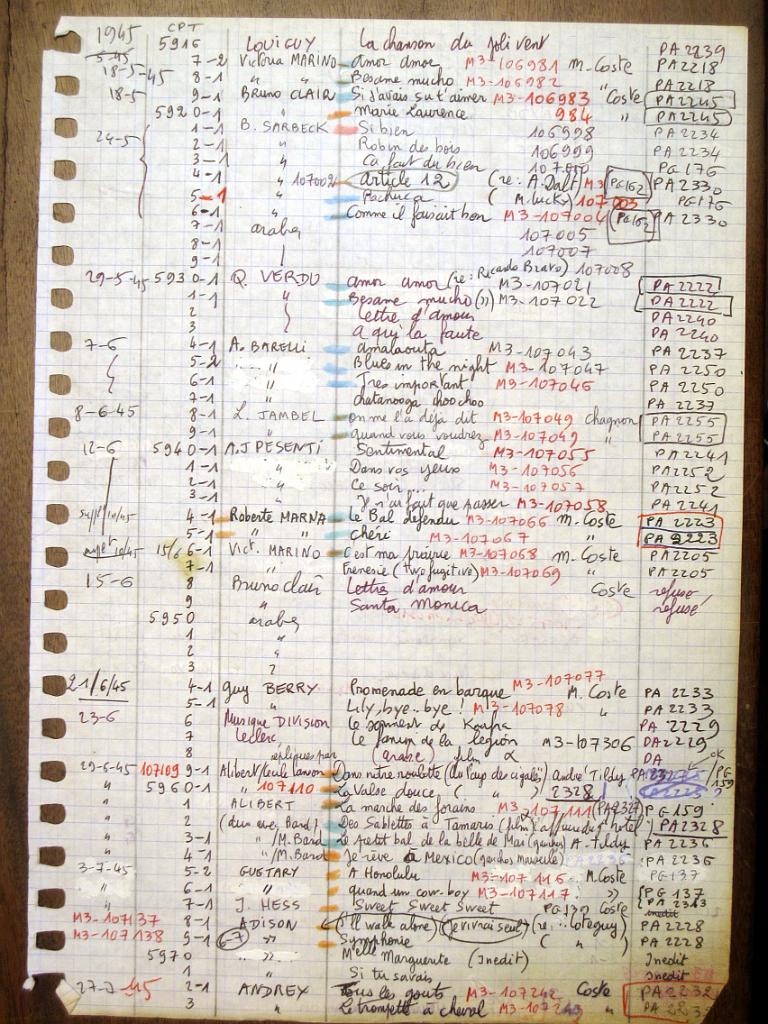 1945 CPT
5916 LOUIGUY La chanson du joli vent PA 2239
5-45 7-2 Victoria MARINO amor amor M3-106981 M. Coste PA 2218
18-5-45 8-1 " " Besame mucho M3-106982 PA 2218
18-5 9-1 Bruno CLAIR Si j'avais su t'aimer M3-106983 Coste PA 2245
5920-1 " Marie Laurence 984 " PA 2245
24-5 1-1 B. SARBECK Si bien 106998 PA 2234
2-1 " Robin des bois 106999 PA 2234
3-1 " Ca fait du bien 107.000 PG 176
4-1 " 107002 article 12 (re: A. Dalf M3 PG 162 PA 2330
5-1 " Pachuca (M. Lucky) 107003 PG 176
6-1 " Comme il faisait bon M3-107004 PG 162 PA 2330
7-1 arabes 107005
8-1 107007
9-1 107008
29-5-45 5930-1 Q. VERDU amor amor (re: Ricardo Bravo) M3-107021 PA 2222
1-1 " Besame mucho (") M3-107022 DA 2222
2 lettre d'amour DA 2240
3 a qui la faute DA 2240
7-6 4-1 A. BARELLI amalaouta M3-107043 PA 2237
5-2 " Blues in the night M3-107047 PA 2250
6-1 " Tres important M3-107046 PA 2250
7-1 " chatanooga choochoo PA 2237
8-6-45 8-1 L. JAMBEL on me l'a déjà dit M3-107049 chagnon PA 2255
9-1 " quand vous voudrez M3-107049 " PA 2255
12-6 5940-1 A.J PESENTI Sentimental M3-107055 PA 2241
1-1 " Dans vos yeux M3-107056 PA 2252
2-1 " Ce soir... M3-107057 PA 2252
3-1 Je n'ai fait que passer M3-107058 PA 2241
4-1 Roberte MARNA Le Bal défendu M3-107066 M. Coste PA 2223
5-1 " " chéri M3-107067 " PA 2223
15/6 6-1 Vict. MARINO c'est ma prairie M3-107068 M. Coste PA 2205
7-1 Frenesie (tu es fugitive) M3-107069 " PA 2205
15-6 8 Bruno clair Lettre d'amour Coste refusé
9 " Santa Monica refusé
5950 arabes
1 "
2 "
3 ?
21/6/45 4-1 guy BERRY Promenade en barque M3-107077 M. Coste PA 2233
5-1 " Lily, bye.. bye! M3-107078 " PA 2233
23-6 6 Musique DIVISION Le serment de Koufra PA 2229
7 Leclerc Le fanion de la légion M3-107306 DA 2229
8 répliques par (arabe) film DA
29-6-45 107109 9-1 Alibert/ Dans notre roulotte (du coup des cigales) André Tildy PA OK /PG 159
" 5960-1 " 107110 La valse douce ( " ) 2328
" 1 ALIBERT La marche des forains M3-107111 (PA 2327) PG 159
" 2 Des Sablettes à Tamaris (film) PA 2328
" 3-1 "/M. Band Le petit bal de la belle de Mai A. Tildy PA 2236
" 4-1 "/M. Band Je rêve à Mexico PA 2236
3-7-45 5-2 GUETARY A Honolulu M3-107116 M. Coste PG 137
" 6-1 " quand un cow-boy M3-107117 " PG 137
" 7-1 J. HESS Sweet Sweet Sweet PG 130 Coste PA 2343
M3-107137 8-1 ADISON (I'll walk alone) (Je vivrai seul) (re: Loteguy) PA 2228 inedit
M3-107138 9-1 6-7 " Symphonie ( " ) PA 2228
5970 " M'elle Marguerite (Inedit) Inedit
1 " Si tu savais Inedit
27-7 45 2-1 ANDREX Tous les gouts M3-107242 Coste PA 2232
3 Le trompette à cheval M3-107243 " PA 2232